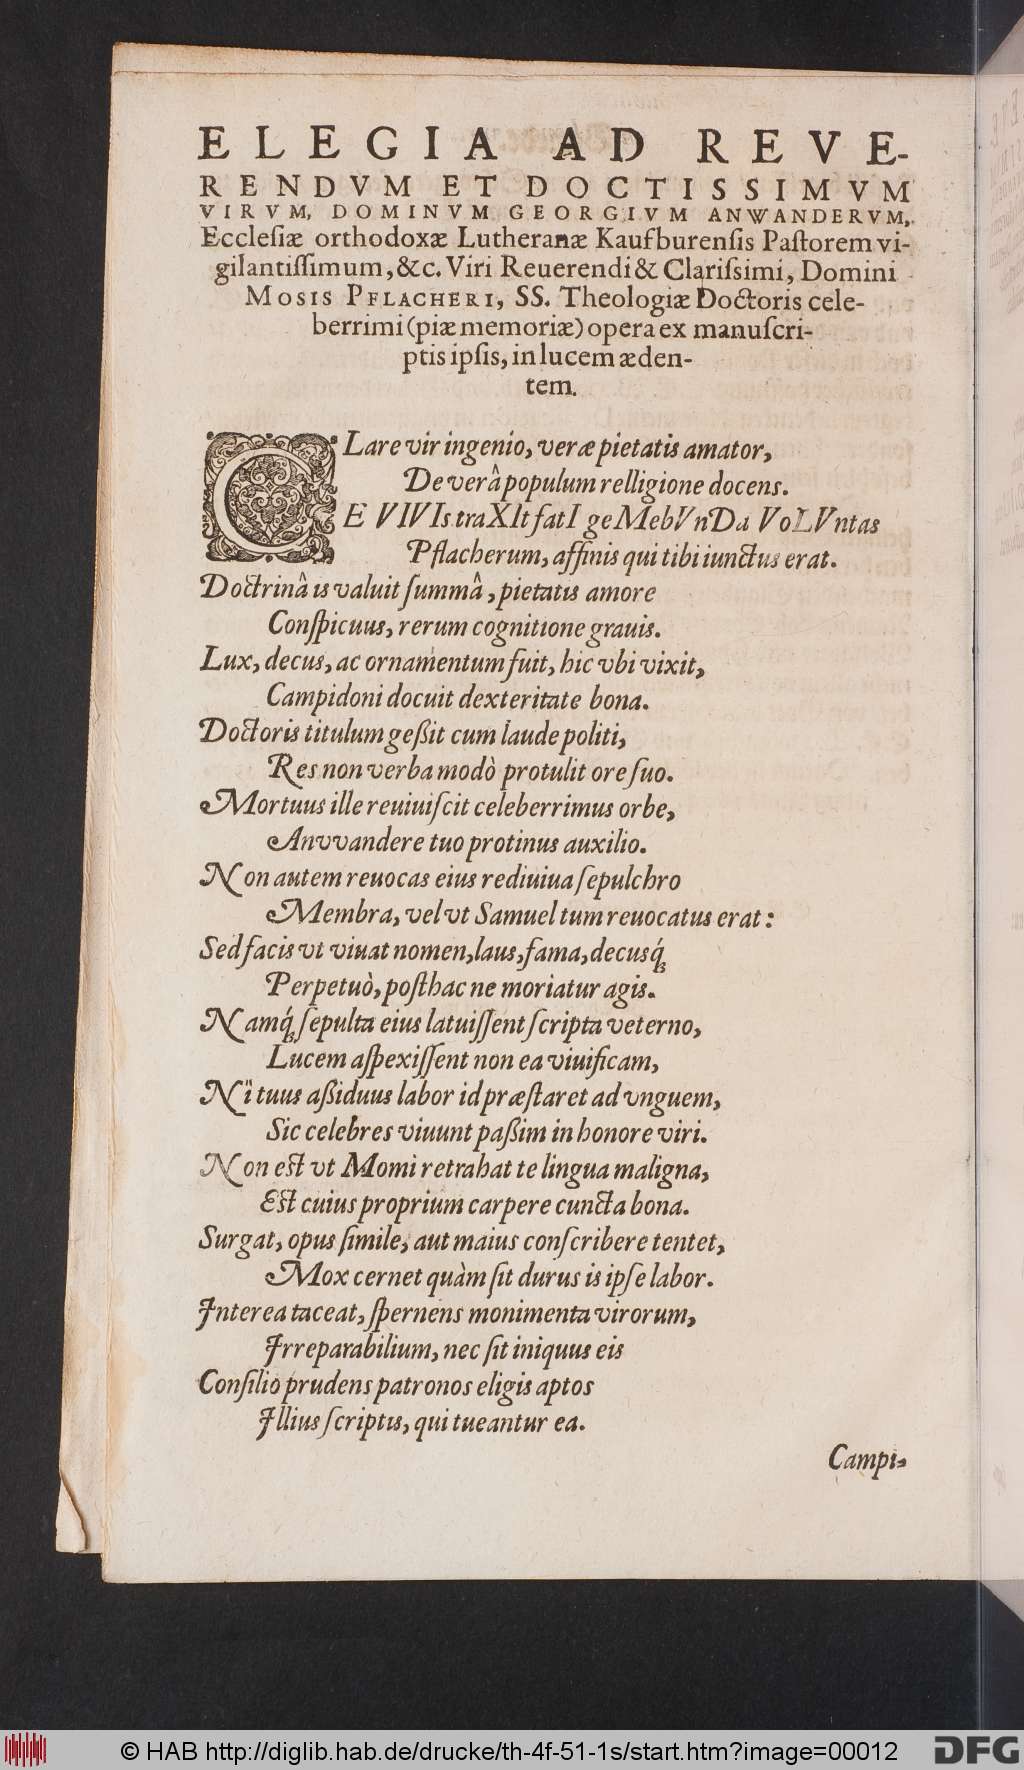 ELEGIA AD REVE-
RENDVM ET DOCTISSIMVM
VIRVM, DOMINVM GEORGIVM ANWANDERVM,
Eccleſiæ orthodoxæ Lutheranæ Kaufburenſis Paſtorem vi-
gilantiſſimum, &c. Viri Reuerendi & Clariſsimi, Domini
MOSIS PFLACHERI, SS. Theologiæ Doctoris cele-
berrimi (piæ memoriæ) opera ex manuſcri-
ptis ipſis, in lucem æden-
tem.
CLare vir ingenio, veræ pietatis amator,
De verâ populum relligione docens.
E VIVIs traXIt fatI geMebVnDa VoLVntas
Pflacherum, affinis qui tibi iunctus erat.
Doctrinâ is valuit ſummâ, pietatis amore
Conſpicuus, rerum cognitione grauis.
Lux, decus, ac ornamentum fuit, hic vbi vixit,
Campidoni docuit dexteritate bona.
Doctoris titulum geßit cum laude politi,
Res non verba modò protulit ore ſuo.
Mortuus ille reuiuiſcit celeberrimus orbe,
Anvvandere tuo protinus auxilio.
Non autem reuocas eius rediuiua ſepulchro
Membra, velvt Samuel tum reuocatus erat:
Sed facis vt viuat nomen, laus, fama, decusq́;
Perpetuò, poſthac ne moriatur agis.
Namq́; ſepulta eius latuiſſent ſcripta veterno,
Lucem aſpexiſſent non ea viuificam,
Nï tuus aßiduus labor id præſtaret ad vnguem,
Sic celebres viuunt paßim in honore viri.
Non eſt vt Momi retrahat te lingua maligna,
Eſt cuius proprium carpere cuncta bona.
Surgat, opus ſimile, aut maius conſcribere tentet,
Mox cernet quàm ſit durus is ipſe labor.
Interea taceat, ſpernens monimenta virorum,
Irreparabilium, nec ſit iniquus eis
Conſilio prudens patronos eligis aptos
Illius ſcriptis, qui tueantur ea.
Campi-
© HAB http://diglib.hab.de/drucke/th-4f-51-1s/start.htm?image=00012
DFG